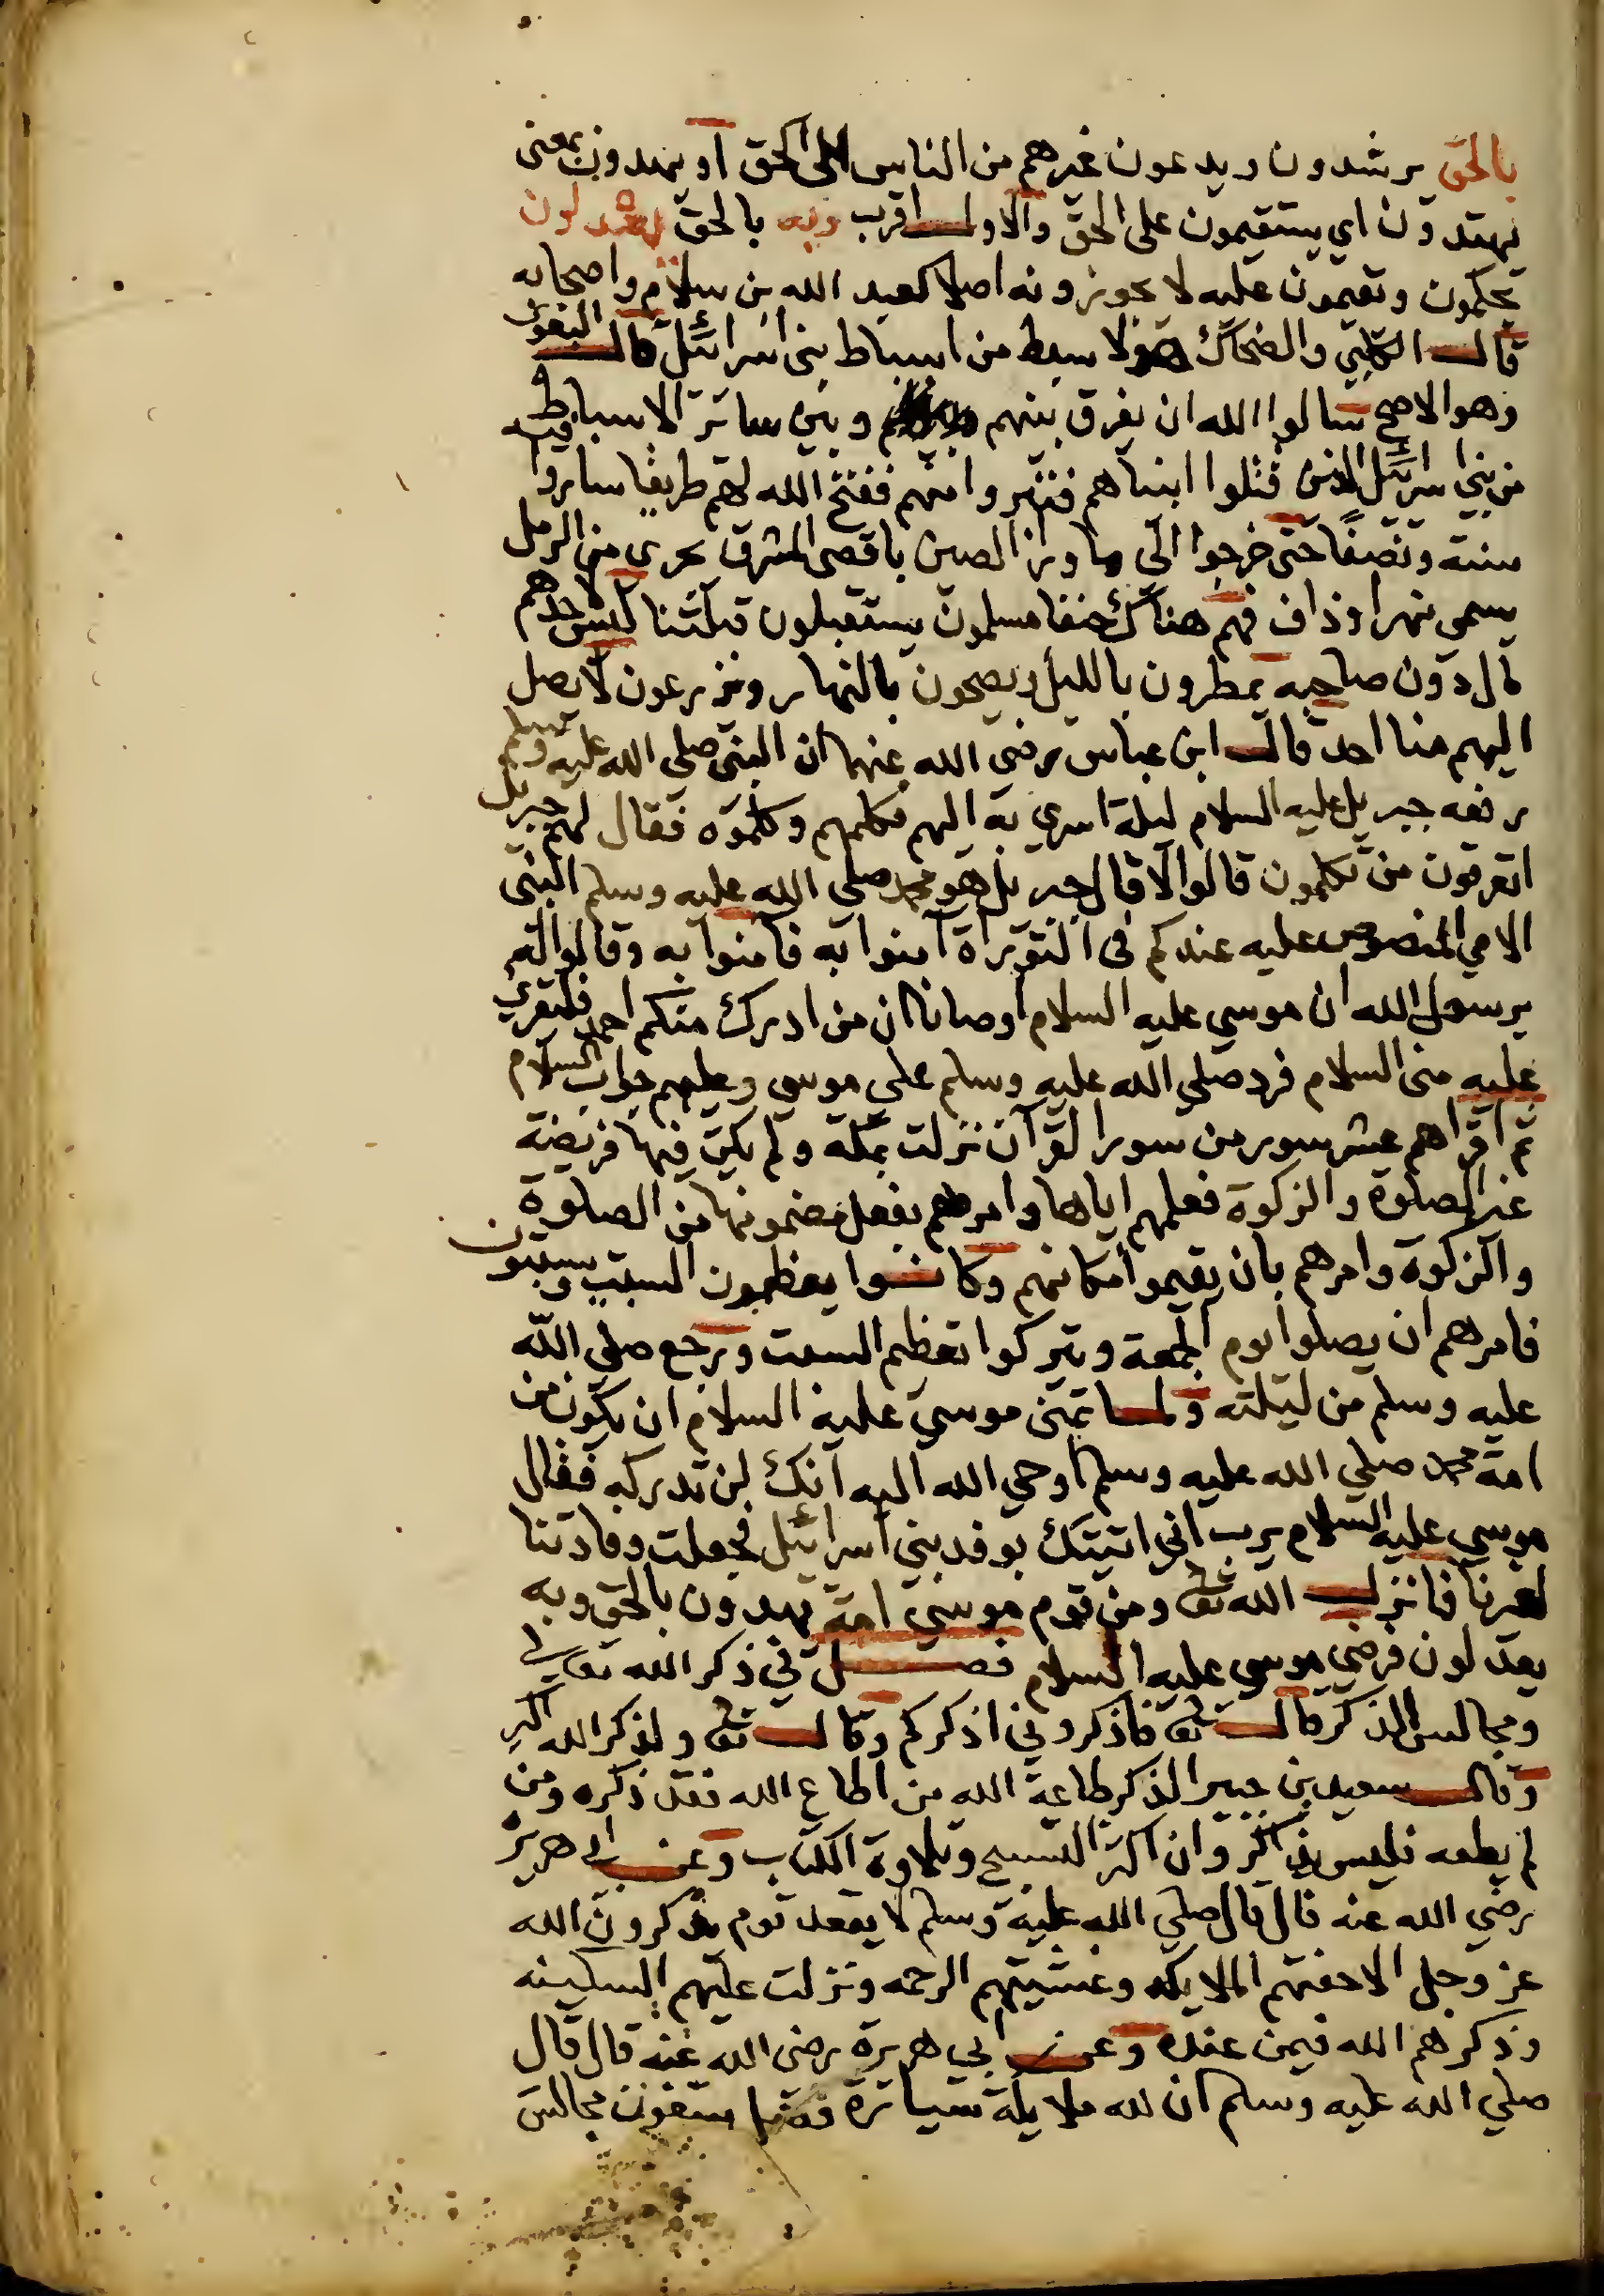 بالحق يرشدون ويدعون غيرهم من الناس الى الحق او يهدون بمعنى
يهتدون اي يستقيمون على الحق والاول اقرب وبه بالحق يعدلون
يحكمون ويقيمون عليه لا يجوزونه اصلا كعبد الله بن سلام واصحابه
قال الكلبي والضحاك هولا سبط من اسباط بنى اسرائيل قال البغوى
وهو الاصح سالوا الله ان يفرق بينهم وبين سائر الاسباط
من بني اسرائيل الذين قتلوا ابنياهم فتبروا منهم ففتح الله لهم طريقا ساروا فيه
سنة ونصفا حتى خرجوا الى ما ورا الصين باقصى المشرق نحرى من الرمل
يسمى نهر اوذاف فهم هناك حنفا مسلمون يستقبلون قبلتنا ليس لاحدهم
مال دون صاحبه يمطرون بالليل ويصحون بالنهار ويزرعون لا يصل
اليهم منا احد قال ابن عباس رضى الله عنهما ان النبى صلى الله عليه وسلم
رفعه جبريل عليه السلام ليلة اسرى به اليهم فكلمهم وكلموه فقال لهم جبريل
اتعرفون من تكلمون قالوا لا قال جبريل هو محمد صلى الله عليه وسلم النبى
الامي المنصوص عليه عندكم فى التوراة آمنوا به فامنوا به وقالوا له
يرسول الله ان موسي عليه السلام اوصانا ان من ادرك منكم احمد فليقرئ
عليه منى السلام فرد صلي الله عليه وسلم على موسى وعليهم جواب السلام
ثم اقراهم عشر سور من سور القرآن نزلت بمكة ولم يكن فيها فريضة
غير الصلوة والزكوة فعلمهم اياها وامرهم بفعل مضمونها من الصلوة
والزكوة وامرهم بان يقيموا مكانهم وكانوا يعظمون السبت ويسبتون
فامرهم ان يصلوا يوم الجمعة ويتركوا تعظيم السبت ورجع صلي الله
عليه وسلم من ليلته ولما تمنى موسي عليه السلام ان يكون من
امة محمد صلي الله عليه وسلم اوحي الله اليه انك لن تدركه فقال
موسي عليه السلام يرب انى اتيتك بوفد بني اسرائيل فجعلت وفادتنا
لغيرنا فانزل الله تعا ومن قوم موسي امة يهدون بالحق وبه
يعدلون فرضي موسي عليه السلام فصل في ذكر الله تعالى
ومجالس الذكر قال تعا فاذكروني اذكركم وقال تعا ولذكر الله اكبر
وقال سعيد بن جبير الذكر طاعة الله من اطاع الله فقد ذكره ومن
لم يطعه فليس بذاكر وان اكثر التسبيح وتلاوة الكتاب وعن ابي هريرة
رضي الله عنه قال قال صلي الله عليه وسلم لا يقعد قوم يذكرون الله
عز وجل الا حفتهم الملايكة وغشيتهم الرحمه ونزلت عليهم السكينه
وذكرهم الله فيمن عنده وعن ابي هريرة رضى الله عنه قال قال
صلي الله عليه وسلم ان لله ملايكة سيارة يبتغون مجالس